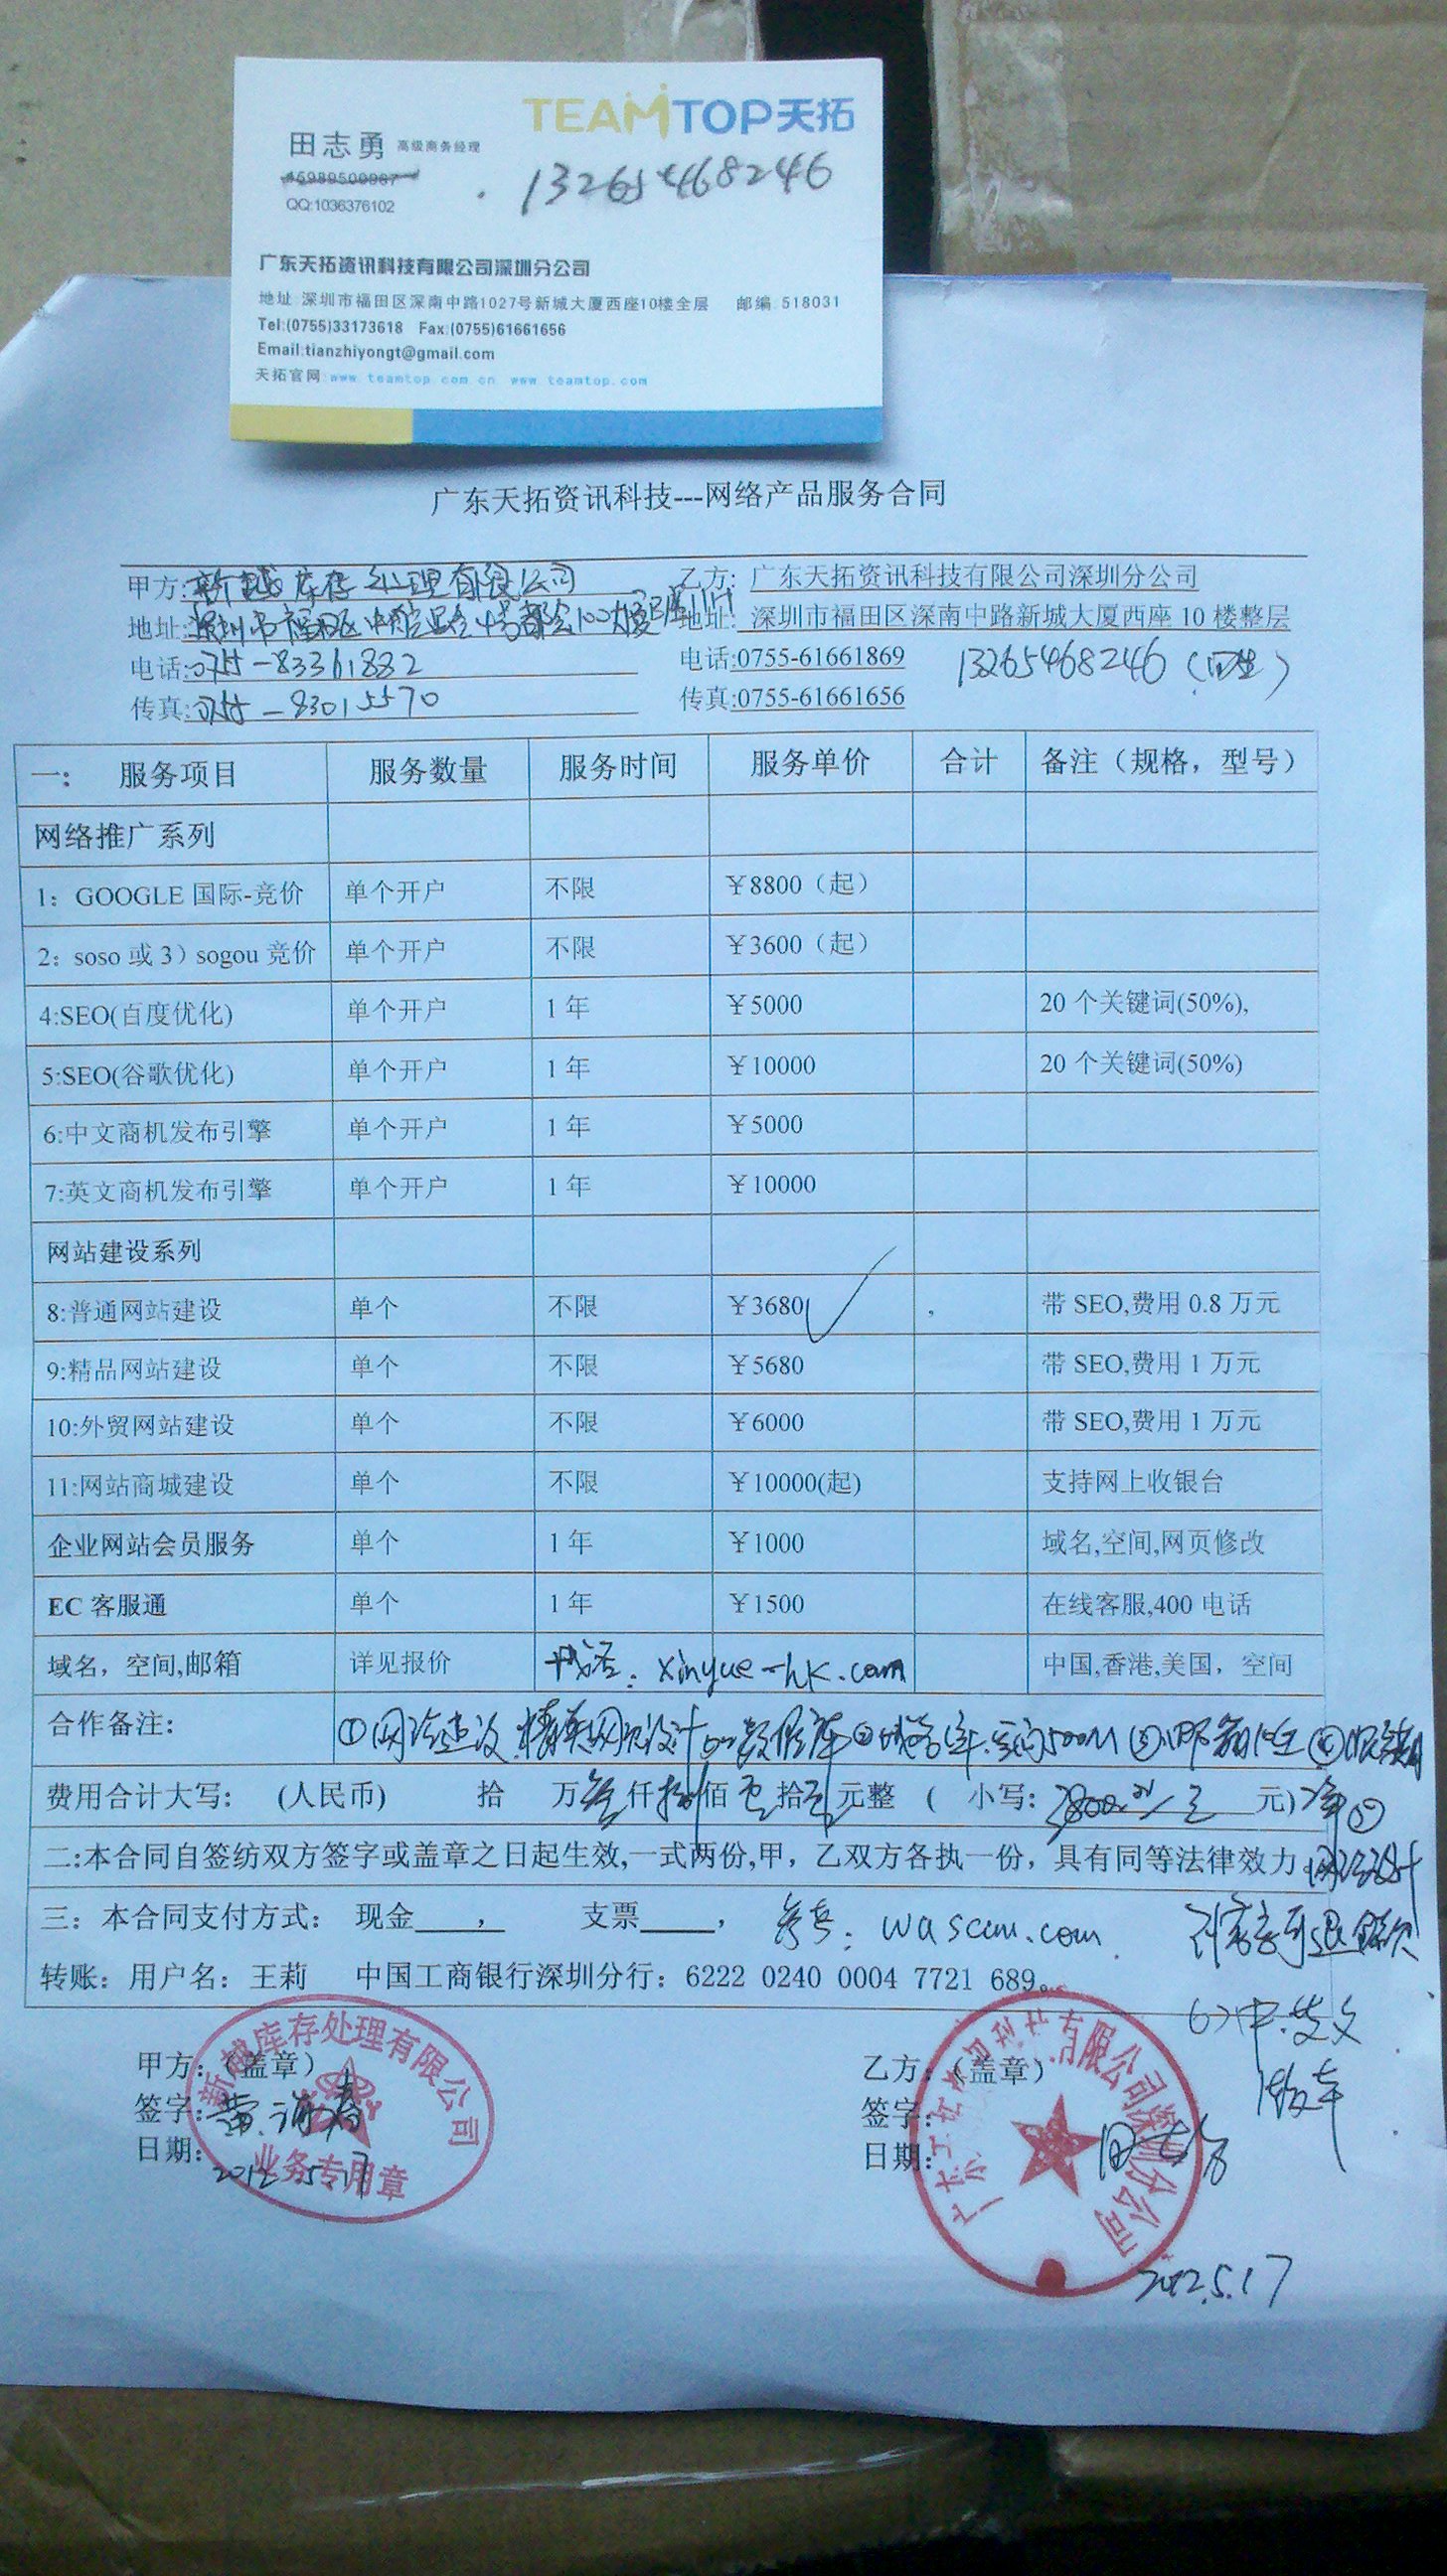 TEAMTOP天拓
田志勇 高级商务经理
13265468246
QQ:1036376102
广东天拓资讯科技有限公司深圳分公司
地址:深圳市福田区深南中路1027号新城大厦西座10楼全层 邮编:518031
Tel:(0755)33173618 Fax:(0755)61661656
Email:tianzhiyongt@gmail.com
天拓官网:www.teamtop.com.cn www.teamtop.com
广东天拓资讯科技---网络产品服务合同
甲方:新越库存处理有限公司 乙方: 广东天拓资讯科技有限公司深圳分公司
地址:深圳市福田区 都会100大厦B座 地址: 深圳市福田区深南中路新城大厦西座 10 楼整层
电话:0755-83361882 电话:0755-61661869 13265468246(田生)
传真:0755-83015570 传真:0755-61661656
一: 服务项目 服务数量 服务时间 服务单价 合计 备注(规格,型号)
网络推广系列
1: GOOGLE 国际-竞价 单个开户 不限 ¥8800(起)
2: soso 或 3) sogou 竞价 单个开户 不限 ¥3600(起)
4:SEO(百度优化) 单个开户 1 年 ¥5000 20 个关键词(50%),
5:SEO(谷歌优化) 单个开户 1 年 ¥10000 20 个关键词(50%)
6:中文商机发布引擎 单个开户 1 年 ¥5000
7:英文商机发布引擎 单个开户 1 年 ¥10000
网站建设系列
8:普通网站建设 单个 不限 ¥3680 带 SEO,费用 0.8 万元
9:精品网站建设 单个 不限 ¥5680 带 SEO,费用 1 万元
10:外贸网站建设 单个 不限 ¥6000 带 SEO,费用 1 万元
11:网站商城建设 单个 不限 ¥10000(起) 支持网上收银台
企业网站会员服务 单个 1 年 ¥1000 域名,空间,网页修改
EC 客服通 单个 1 年 ¥1500 在线客服,400 电话
域名,空间,邮箱 详见报价 域名: xinyue-hk.com 中国,香港,美国,空间
合作备注: ①网站建设 精美网页设计 数据库 ② 空间500M ③邮箱 ④
费用合计大写: (人民币) 拾 万叁仟捌佰零拾零元整 ( 小写: 3800 元)
二:本合同自签纺双方签字或盖章之日起生效,一式两份,甲,乙双方各执一份,具有同等法律效力.网站设计
三:本合同支付方式: 现金 , 支票 , 参考: wascm.com 可退款
转账:用户名:王莉 中国工商银行深圳分行:6222 0240 0004 7721 689。
⑥中.英文
版本
甲方:(盖章) 乙方:(盖章)
签字: 签字: 田志勇
日期: 2012.5.17 日期:
2012.5.17
新越库存处理有限公司
业务专用章